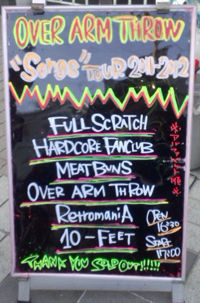 OVER ARM THROW
"Songs" TOUR 2011-2012
FULLSCRATCH
HARDCORE FANCLUB
MEAT BUNS
OVER ARM THROW
RetromaniA
10-FEET
OPEN
16:30
START
17:00
THANK YOU SOLD OUT!!!!!